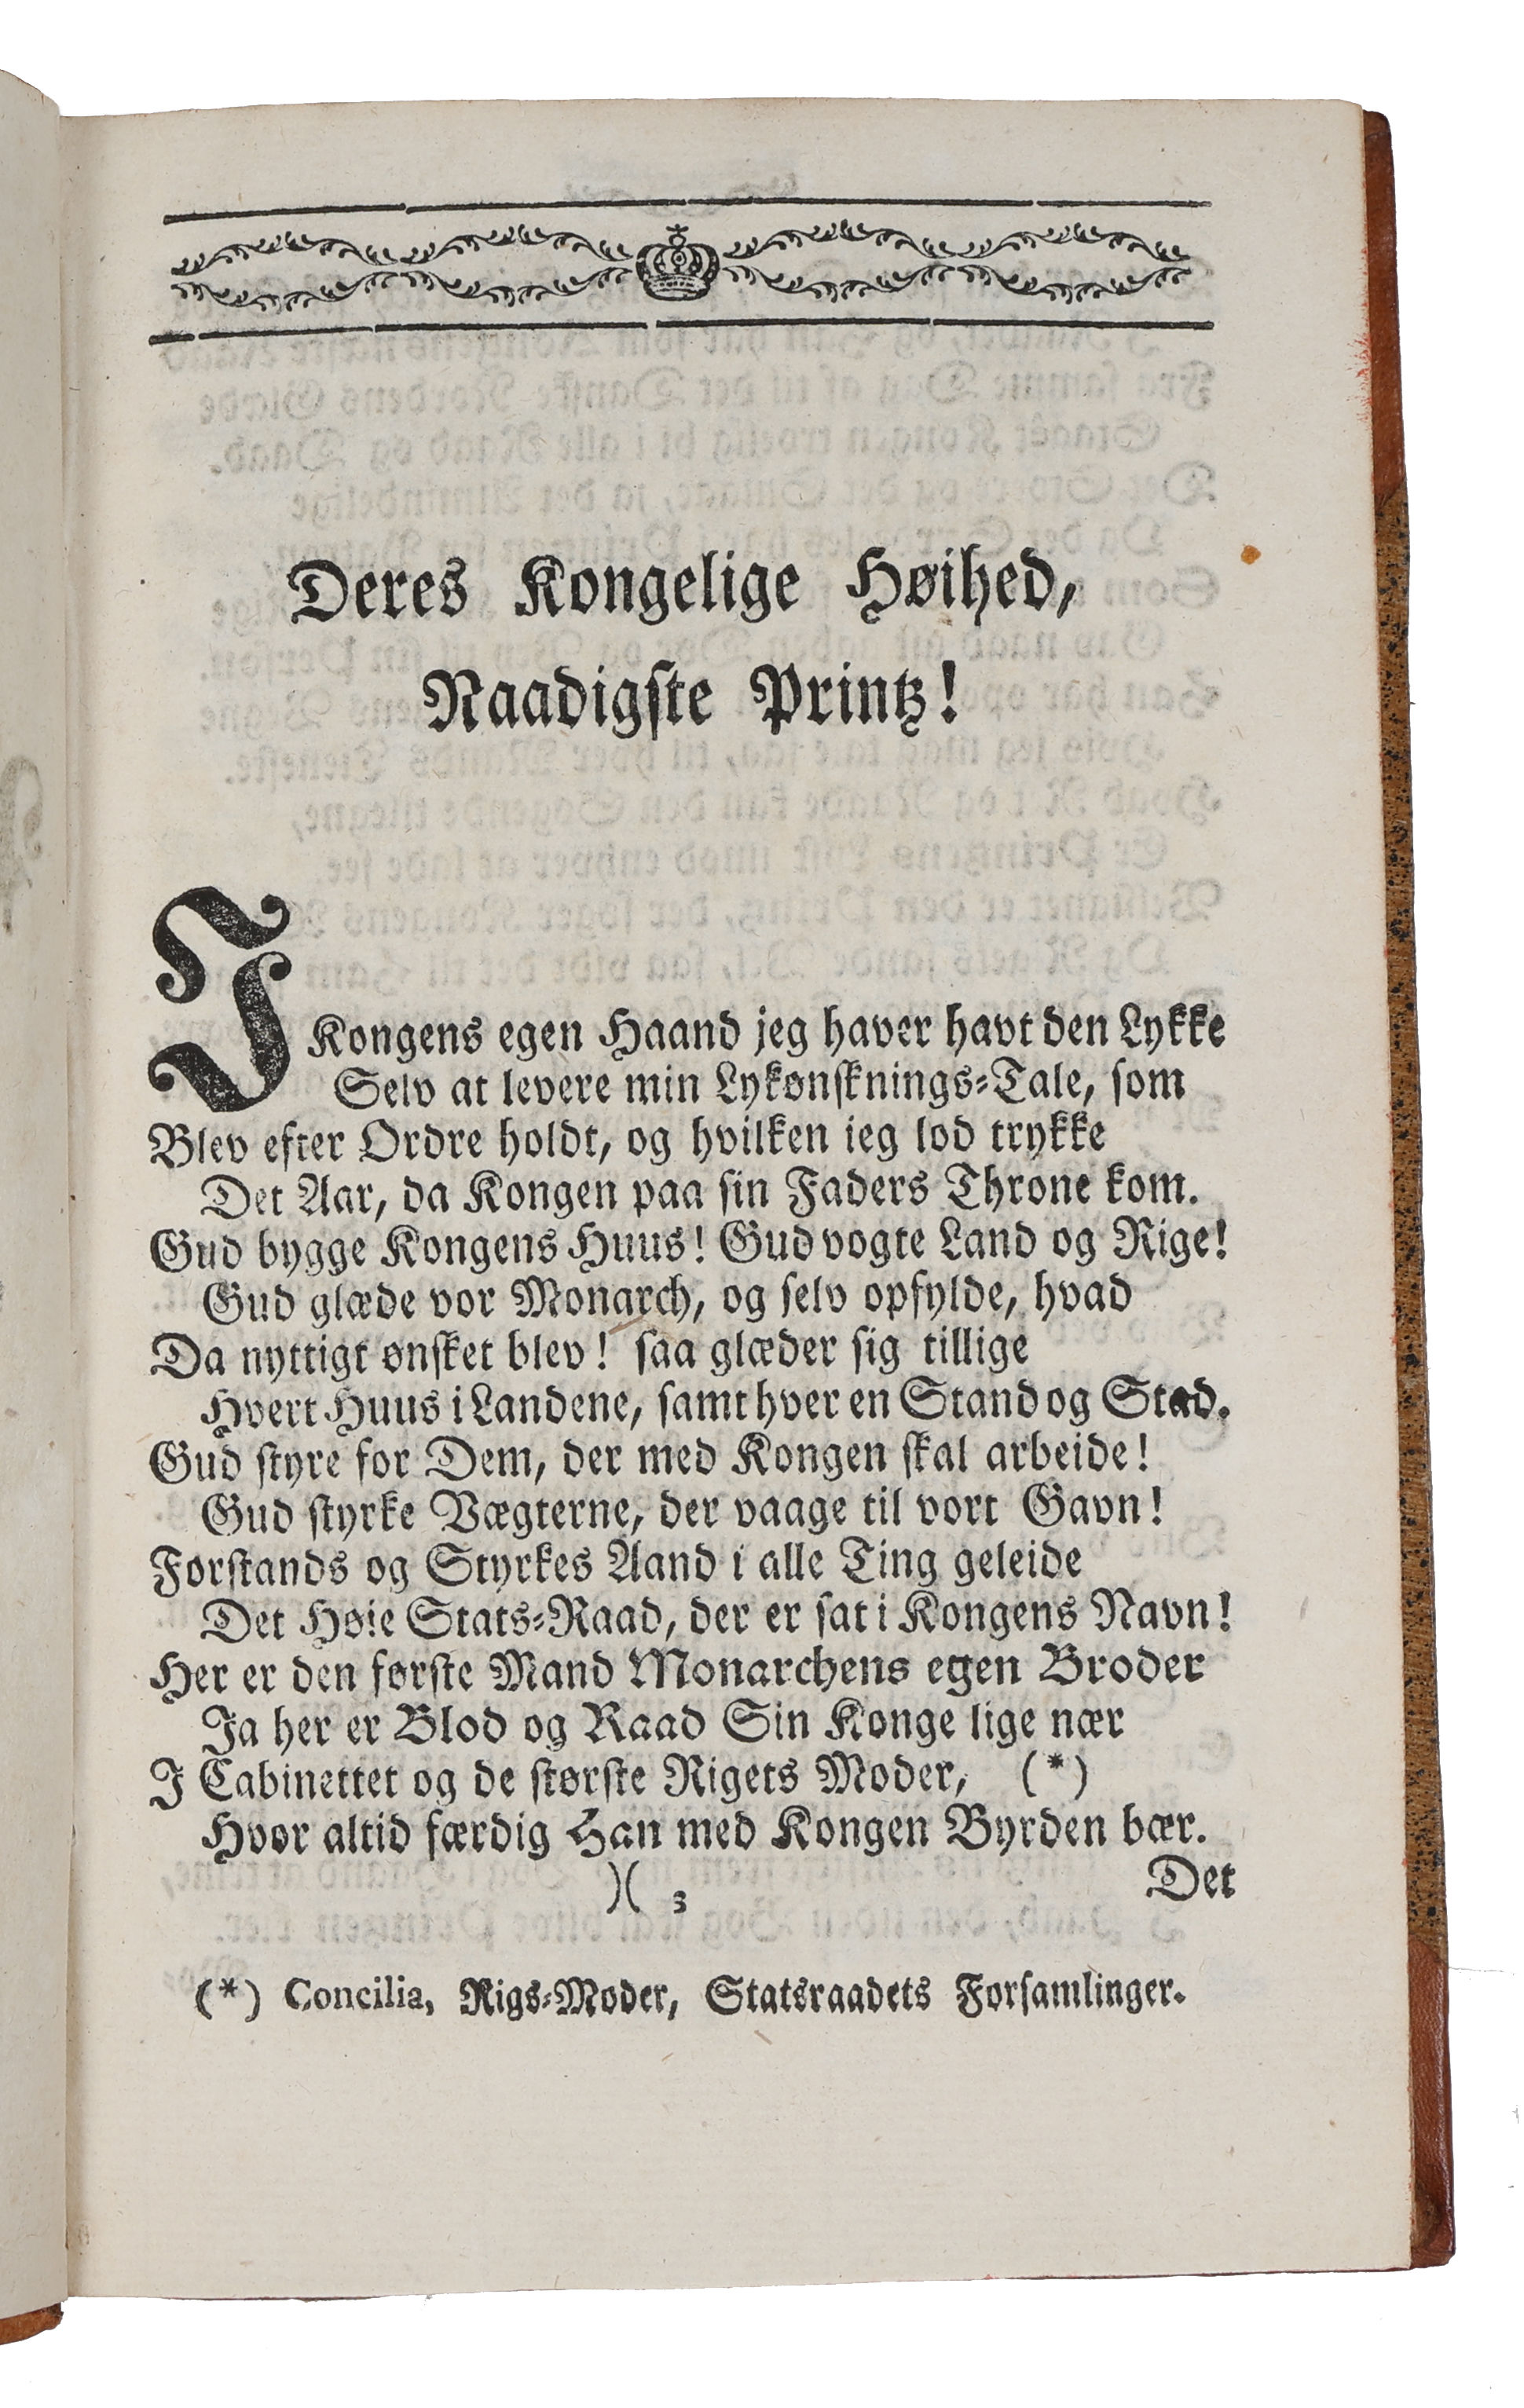 Deres Kongelige Høihed,
Naadigste Printz!
I Kongens egen Haand jeg haver havt den Lykke
Selv at levere min Lykønsknings-Tale, som
Blev efter Ordre holdt, og hvilken ieg lod trykke
Det Aar, da Kongen paa sin Faders Throne kom.
Gud bygge Kongens Huus! Gud vogte Land og Rige!
Gud glæde vor Monarch, og selv opfylde, hvad
Da nyttigt ønsket blev! saa glæder sig tillige
Hvert Huus i Landene, samt hver en Stand og Stad.
Gud styre for Dem, der med Kongen skal arbeide!
Gud styrke Vægterne, der vaage til vort Gavn!
Forstands og Styrkes Aand i alle Ting geleide
Det Høie Stats-Raad, der er sat i Kongens Navn!
Her er den første Mand Monarchens egen Broder
Ja her er Blod og Raad Sin Konge lige nær
I Cabinettet og de største Rigets Moder, (*)
Hvor altid færdig Han med Kongen Byrden bær.
)( 3 Det
(*) Concilia, Rigs-Moder, Statsraadets Forsamlinger.